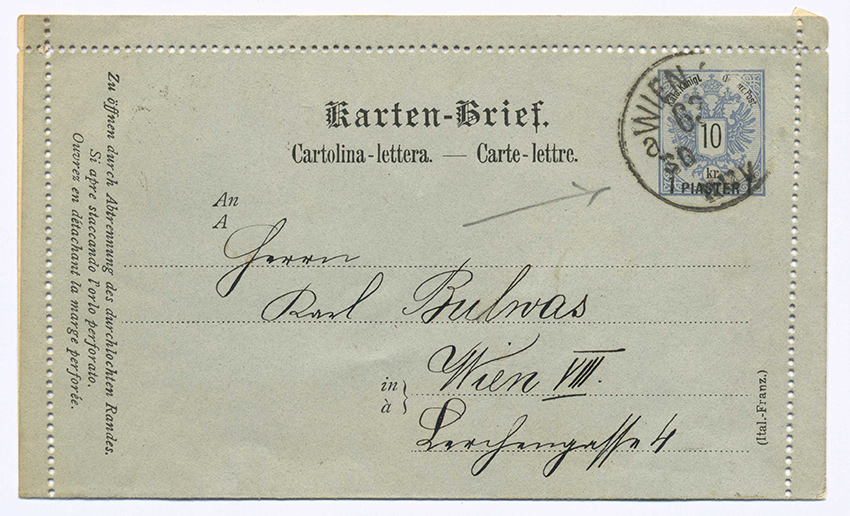 Karten-Brief.
Cartolina-lettera. — Carte-lettre.
An
A
Herrn
Karl Bulwas
in
à
Wien VIII.
Lerchengasse 4
(Ital.-Franz.)
Zu öffnen durch Abtrennung des durchlochten Randes.
Si apre staccando l'orlo perforato.
Ouvrez en détachant la marge perforée.
10
kr.
1 PIASTER 1
WIEN